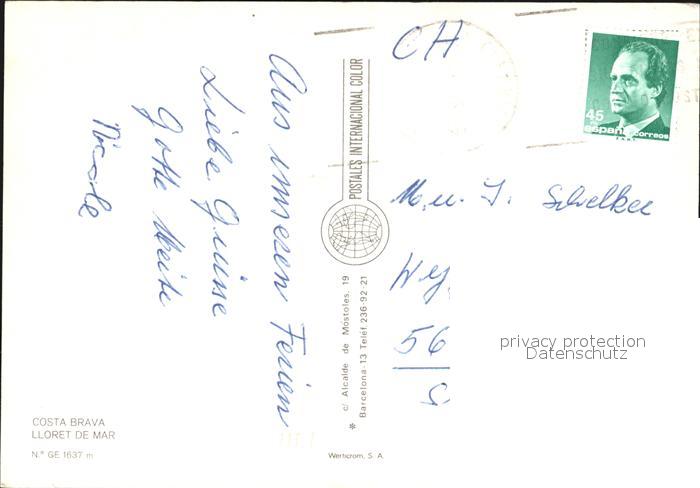 Aus unseren Ferien
Liebe Grüsse
Gotte Meite
Nicole
CH
M. u. J. Schelker
Weg
56
45
españa correos
POSTALES INTERNACIONAL COLOR
c/ Alcalde de Móstoles, 19
* Barcelona-13 Teléf. 236-92-21
privacy protection
Datenschutz
COSTA BRAVA
LLORET DE MAR
N.° GE 1637 m
Werticrom, S. A.